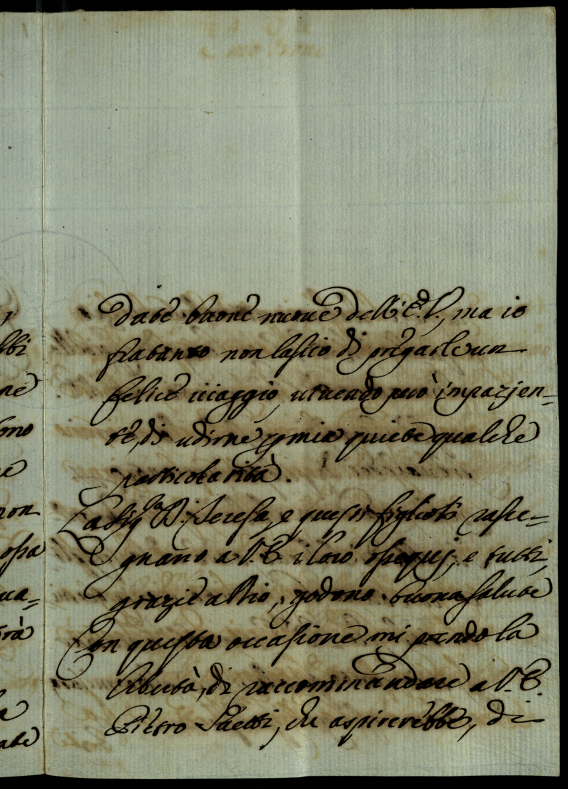 date buone nuove dell'E.V., ma io
fratanto non lascio di pregarle un
felice viaggio, vivendo però impazjen=
te, di udirne p mia quiete qualche
particolarità.
La Sig.ra D. Teresa, e questi figlioli rasse=
gnano a V.E. i loro ossequj, e tutti,
grazie a Dio, godono buona salute
Con questa occasione mi prendo la
libertà, di raccommandare a V.E.
Pietro che aspirerebbe, di